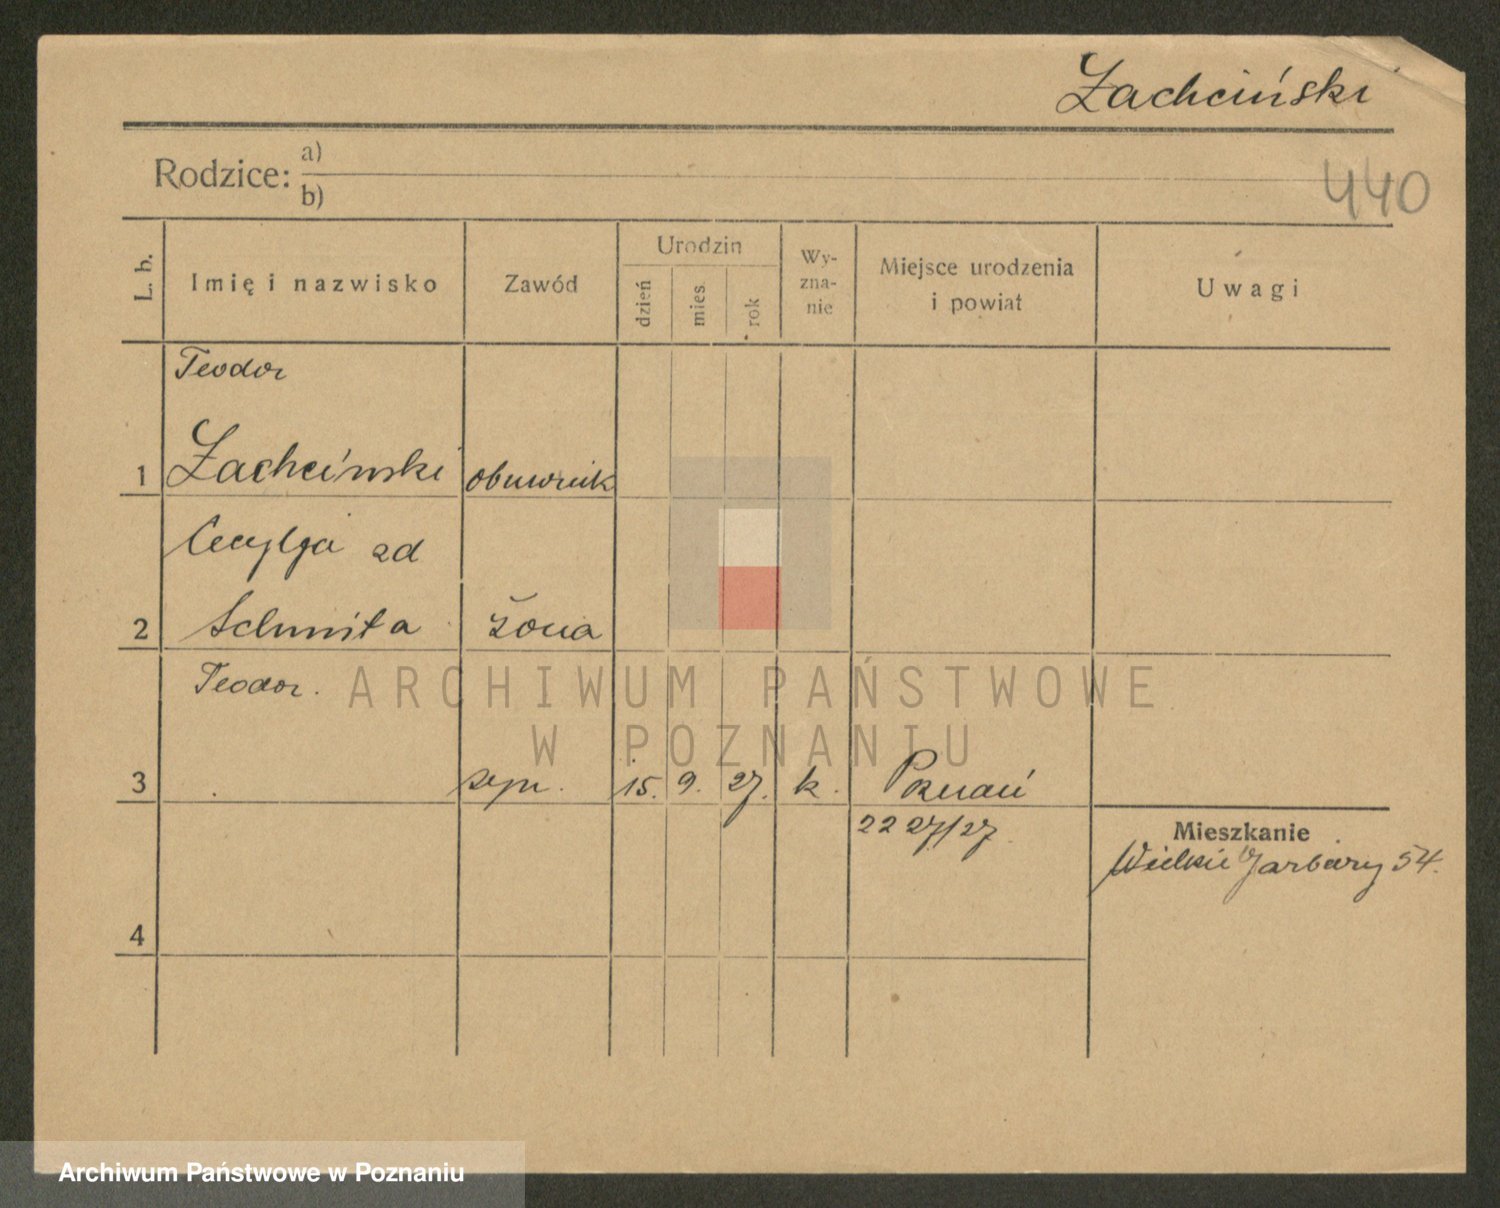 Zachciński
Rodzice: a)
b)
440
L. b.
Imię i nazwisko
Zawód
Urodzin
dzień
mies.
rok
Wy-
zna-
nie
Miejsce urodzenia
i powiat
Uwagi
Teodor
1 Zachciński obuwnik
Cecylja zd
2 Schmita żona
Teodor.
3 syn. 15. 9. 27. k. Poznań
2227/27
Mieszkanie
Wielkie Garbary 54.
4
ARCHIWUM PAŃSTWOWE
W POZNANIU
Archiwum Państwowe w Poznaniu